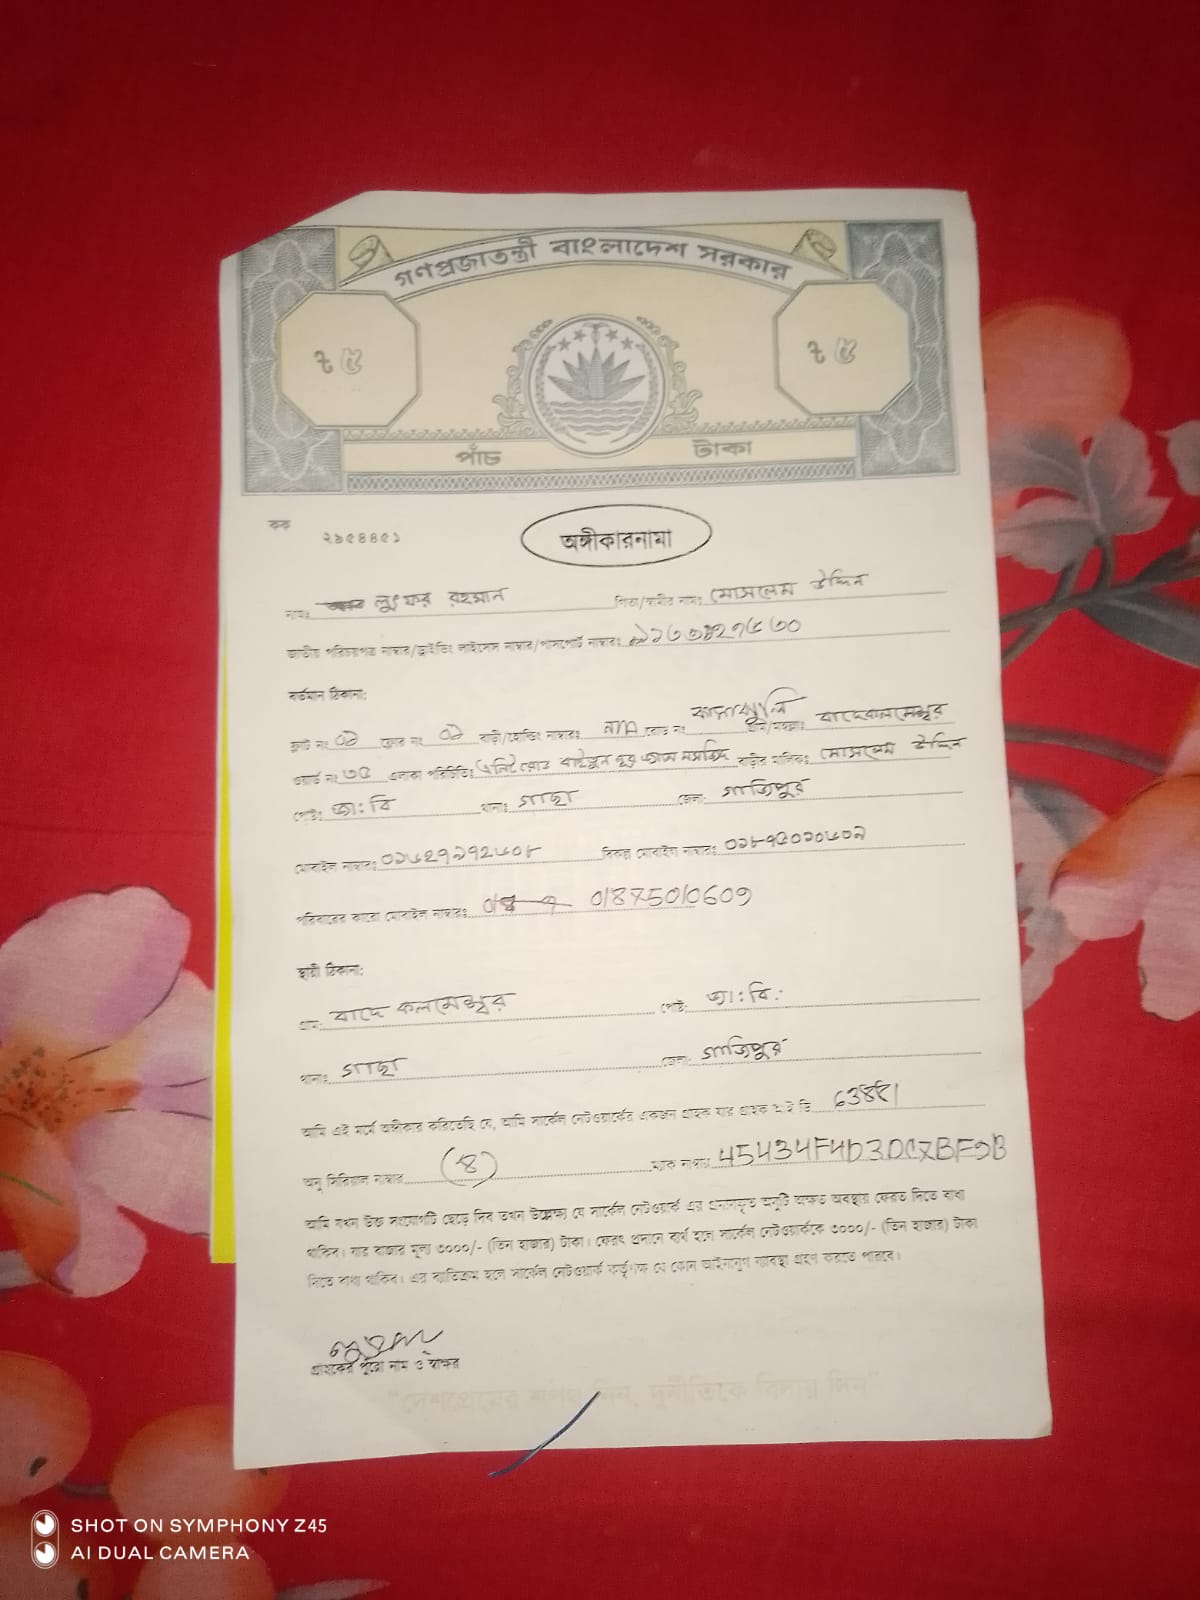 গণপ্রজাতন্ত্রী বাংলাদেশ সরকার
৳ ৫ ৳ ৫
পাঁচ টাকা
কক ২৯৫৪৪৫১
অঙ্গীকারনামা
নামঃ লুৎফর রহমান পিতা/স্বামীর নামঃ মোসলেম উদ্দিন
জাতীয় পরিচয়পত্র নাম্বার/ড্রাইভিং লাইসেন্স নাম্বার/পাসপোর্ট নাম্বারঃ
বর্তমান ঠিকানা:
ফ্লাট নং ০১ ফ্লোর নং ০১ বাড়ী/হোল্ডিং নাম্বারঃ N/A রোড নং গ্রাম/মহল্লাঃ বাদেকলমেশ্বর
ওয়ার্ড নং ৩৫ এলাকা পরিচিতিঃ বাইতুন নুর জামে মসজিদ বাড়ীর মালিকঃ মোসলেম উদ্দিন
পোষ্টঃ জা:বি থানাঃ গাছা জেলা: গাজিপুর
মোবাইল নাম্বারঃ বিকল্প মোবাইল নাম্বারঃ
পরিবারের কারো মোবাইল নাম্বারঃ 01875010609
স্থায়ী ঠিকানা:
গ্রাম: বাদে কলমেশ্বর পোষ্ট: জা:বি:
থানাঃ গাছা জেলা: গাজিপুর
আমি এই মর্মে অঙ্গীকার করিতেছি যে, আমি সার্কেল নেটওয়ার্কের একজন গ্রাহক যার গ্রাহক আই ডি
অনু সিরিয়াল নাম্বার (৪) ম্যাক নাম্বারঃ
আমি যখন উক্ত সংযোগটি ছেড়ে দিব তখন উল্লেক্ষ্য যে সার্কেল নেটওয়ার্ক এর প্রদানকৃত অনুটি অক্ষত অবস্থায় ফেরত দিতে বাধ্য
থাকিব। যার বাজার মূল্য ৩০০০/- (তিন হাজার) টাকা। ফেরৎ প্রদানে ব্যর্থ হলে সার্কেল নেটওয়ার্ককে ৩০০০/- (তিন হাজার) টাকা
দিতে বাধ্য থাকিব। এর ব্যতিক্রম হলে সার্কেল নেটওয়ার্ক কর্তৃপক্ষ যে কোন আইনানুগ ব্যবস্থা গ্রহণ করতে পারবে।
গ্রাহকের পুরো নাম ও স্বাক্ষর
"দেশপ্রেমের শপথ নিন, দুর্নীতিকে বিদায় দিন"
SHOT ON SYMPHONY Z45
AI DUAL CAMERA